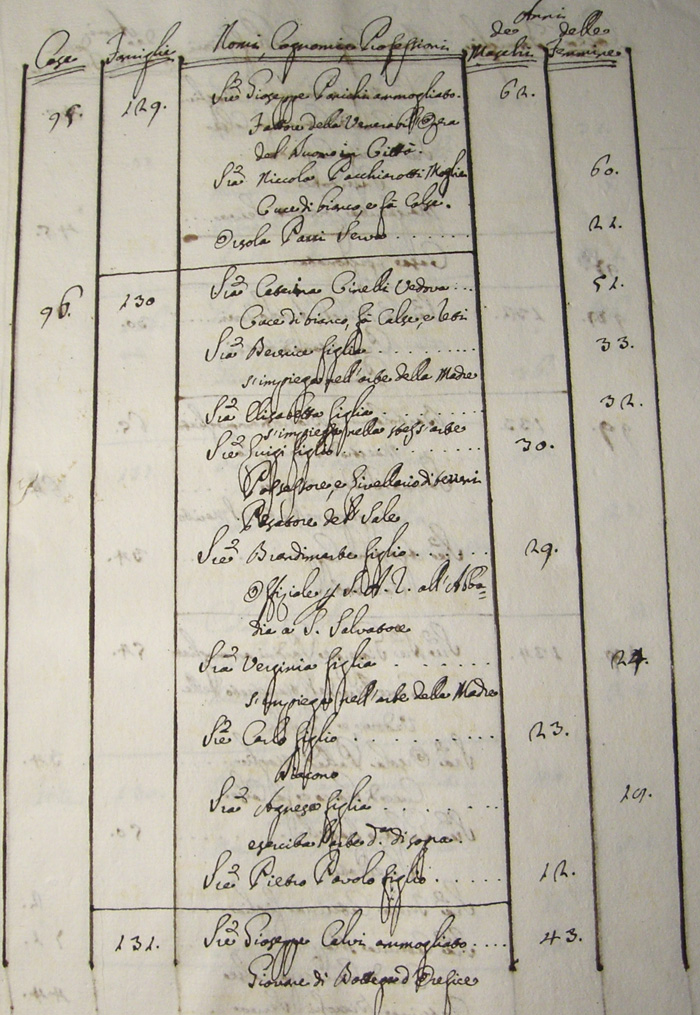 Anni
Case Famiglie Nomi, Cognomi, e Professioni de Maschi delle Femmine
95. 129. Sig.e Giuseppe ammogliato. 62.
Fattore della Venerabil Opera
del Duomo in Città.
Sig.a Niccola Pacchiarotti Moglie 60.
Cuce di bianco, e fà Calze.
Orsola Parri Serva 22.
96. 130 Sig.a Caterina Cinelli Vedova 52.
Cuce di bianco, fà Calze, e
Sig.a Bernice figlia 33.
s'impiega nell'arte della Madre
Sig.a Elisabetta figlia 32.
s'impiega nella stess'arte
Sig.e Luigi figlio 30.
Possessore, e Livellario di terreni
Pesatore del Sale
Sig.e Brandimarte figlio 29.
Offiziale p S. A. R. all'Abba=
dia a S. Salvatore
Sig.a Verginia figlia 24.
s'impiega nell'arte della Madre
Sig.e Carlo figlio 23.
Diacono
Sig.a Agnese figlia 19.
esercita l'arte d.a di sopra.
Sig.e Pietro Pavolo figlio 12.
131. Sig.e Giuseppe Calvi ammogliato 43.
Giovane di Bottega d'Orefice